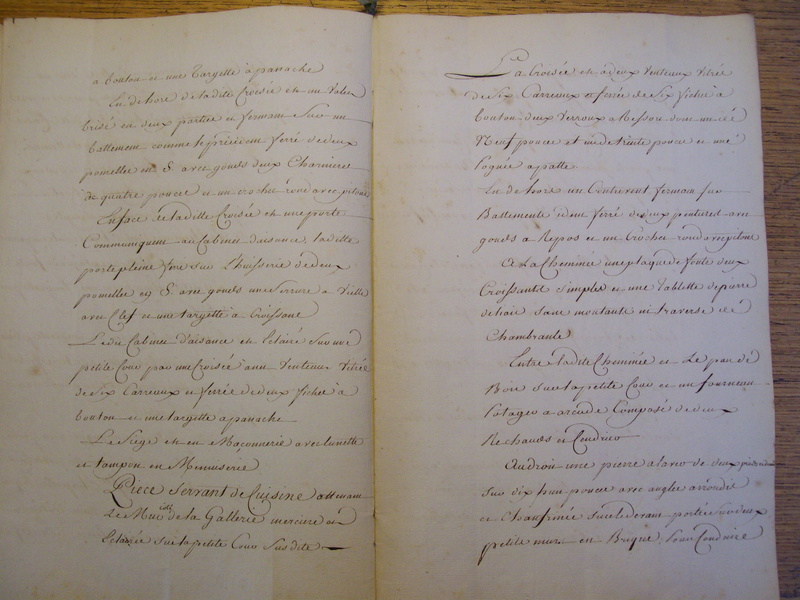 a bouton et une Targette a panache
En dehors de ladite Croisée est un Volet
brisé en deux parties et fermant sur un
battement comme le précédent ferré de deux
pomelles en S avec gonds deux Charniere
de quatre pouces et un crochet rond avec pitons
En face de ladite Croisée est une porte
Communiquant au Cabinet daisance ladite
porte pleine sur l'huisserie de deux
pomelles en S avec gonds une Serrure a
avec Clef et une targette a Croissant
Ledit Cabinet d'aisance est Eclairé sur une
petite Cour par une Croisée a un Venteau Vitrée
de Six Carreaux et ferrée de deux fiches a
bouton et une targette a panache
Le Siége est en Maçonnerie avec lunette
et tampon en Menuiserie
Piece Servant de Cuisine attenant
le Mur de la Gallerie merciere et
Eclairée sur la petite Cour Susdite
La Croisée est a deux Venteaux Vitrée
de Six Carreaux et ferrée de Six fiches a
bouton deux Verroux a Ressort dont un de
Neuf pouces et un de trente pouces et une
Poignée a patte
En dehors un Contrevent fermant sur
Battements idem ferré de deux pentures avec
gonds a Repos et un Crochet rond avec pitons
A La Cheminée une plaque de fonte deux
Croissants Simples et une Tablette de pierre
de liais sans montants ni traverse de
Chambranle
Entre ladite Cheminée et Le pan de
Bois sur la petite Cour est un fourneau
Potager a arcade Composé de deux
Rechauds et Cendrier
Au droit une pierre a laver de deux pieds
sur dix huit pouces avec angles arrondis
et Chanfrinée sur le devant portée sur deux
petits murs en Brique, pour Conduire